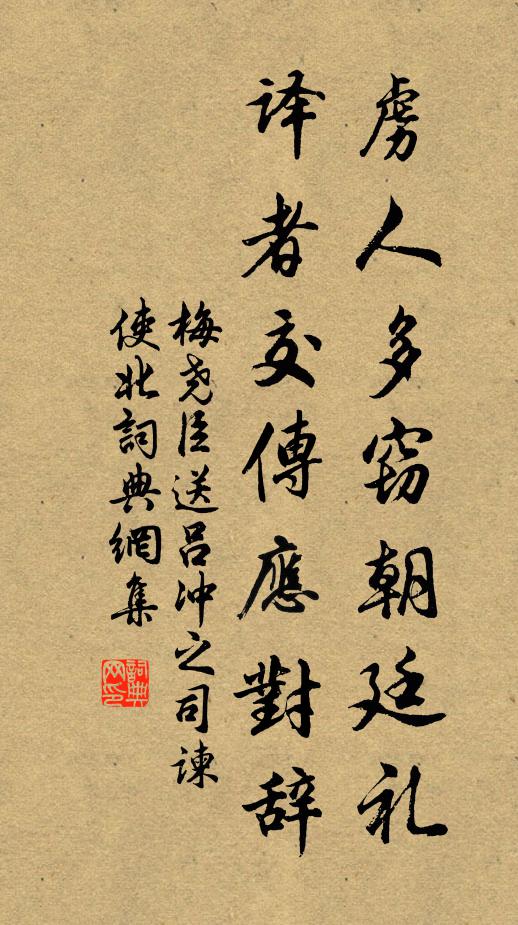 虏人多窃朝廷礼
译者交傳應對辞
梅尧臣送吕冲之司谏
使北詞典網集
詞典
网印